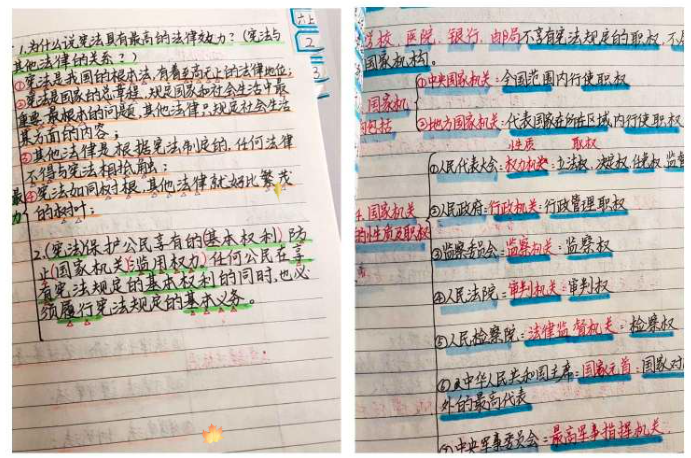 六上
2
3
1.为什么说宪法具有最高的法律效力？(宪法与
其他法律的关系？)
①宪法是我国的根本法,有着至高无上的法律地位;
②宪法是国家的总章程,规定国家和社会生活中最
重要、最根本的问题,其他法律只规定社会生活
某方面的内容;
③其他法律是根据宪法制定的,任何法律
不得与宪法相抵触;
④宪法如同树根,其他法律就好比繁茂
的树叶;
2.(宪法)保护公民享有的(基本权利)防
止(国家机关)滥用权力)任何公民在享
有宪法规定的基本权利的同时,也必
须履行宪法规定的基本义务。
学校、医院、银行、邮局不享有宪法规定的职权,不
国家机构。
①中央国家机关:全国范围内行使职权
国家机
包括
②地方国家机关:代表国家在所在区域内行使职权
性质 职权
①人民代表大会:权力机关:立法权、决定权、任免权、监督
4.国家机关
的性质及职权
②人民政府:行政机关:行政管理职权
③监察委员会:监察机关:监察权
④人民法院:审判机关:审判权
⑤人民检察院:法律监督机关:检察权
⑥中华人民共和国主席:国家元首:国家对
外的最高代表
⑦中央军事委员会:最高军事指挥机关